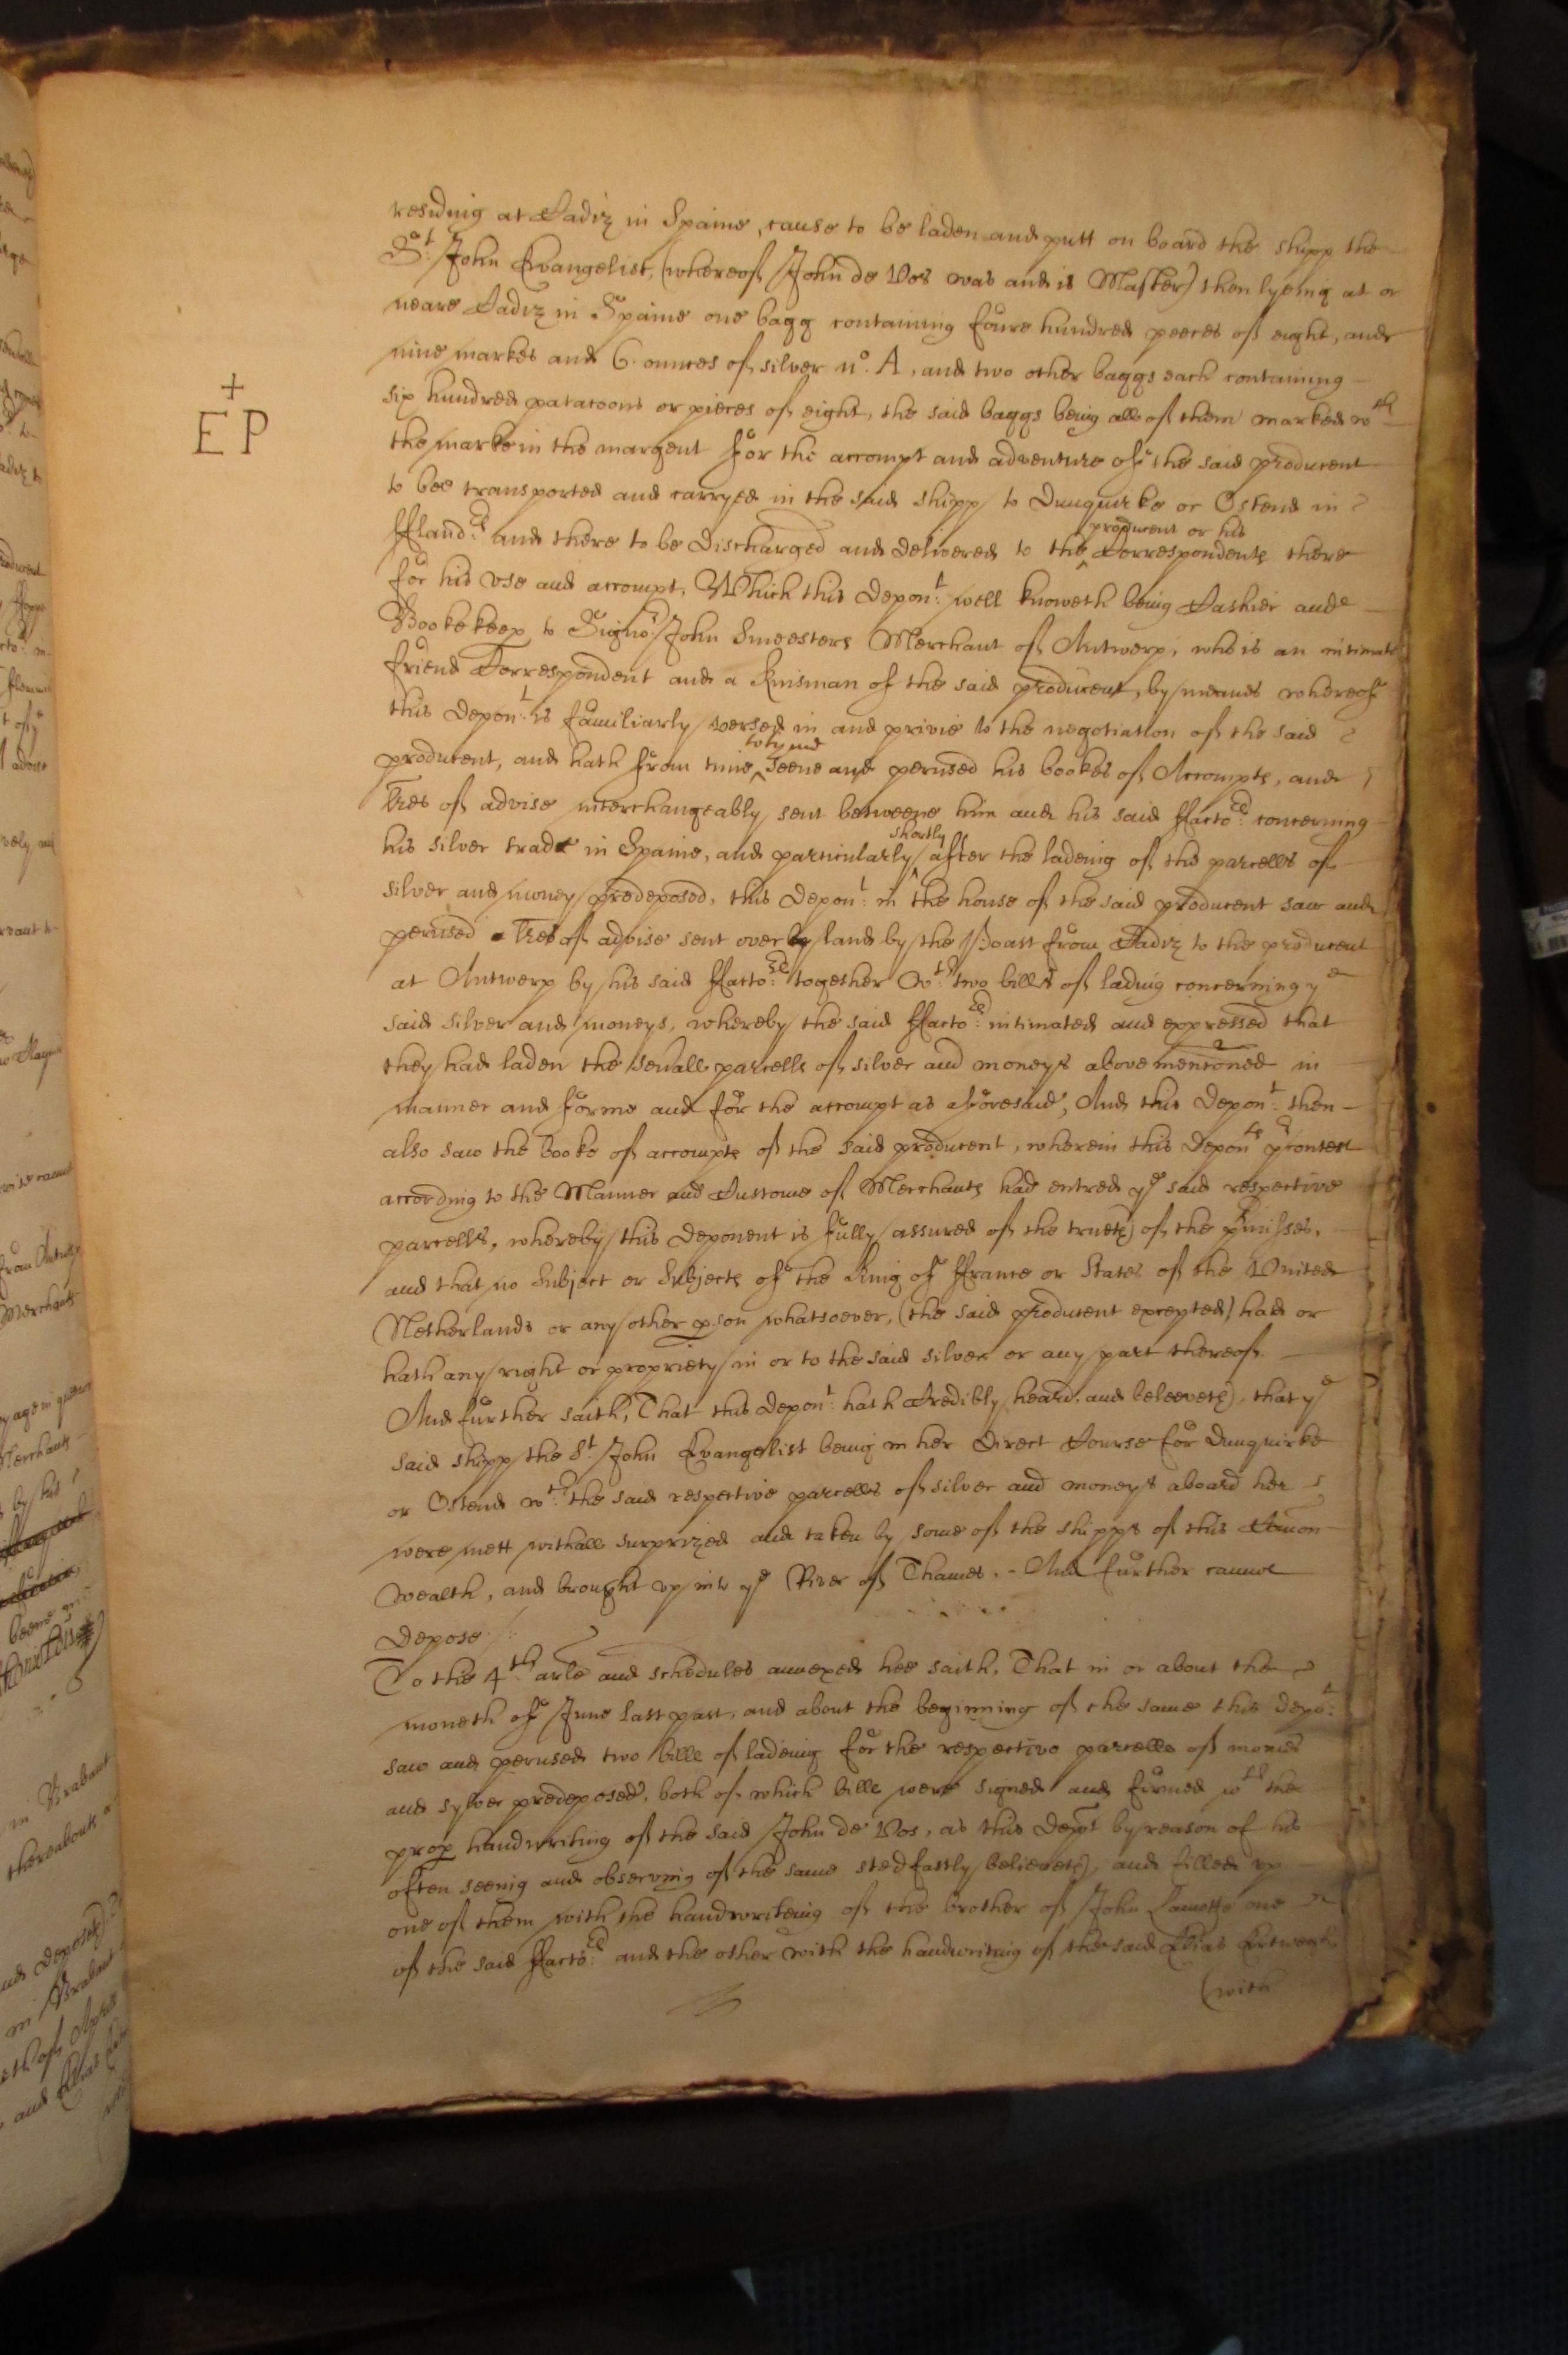 residing at Cadiz in Spaine, cause to be laden and putt on board the shipp the
St. John Evangelist, (whereof John de Vos was and is Master) then lyeing at or
neare Cadiz in Spaine one bagg containing foure hundred peeces of eight, and
nine markes and 6. ounces of silver no. A, and two other baggs each containing
six hundred patacoons or pieces of eight, the said baggs being all of them marked wth
+
EP
the marke in the margent for the accompt and adventure of the said producent
to bee transported and carryed in the said shipp to Dunquirke or Ostend in
producent or his
ffland:rs and there to be discharged and delivered to the ^ Correspondents there
for his use and accompt, Which this depont: well knoweth being Cashier and
Bookekeep to Signor John Smeesters Merchant of Antwerp, who is an intimate
friend Correspondent and a Kinsman of the said producent, by meanes whereof
this depont: is familiarly versed in and privie to the negotiation of the said
to tyme
producent, and hath from time ^ seene and perused his bookes of Accompts, and
lres of advise interchangeably sent betweene him and his said ffacto:rs concerning
shortly
his silver trade in Spaine, and particularly ^ after the ladeing of the parcells of
silver and money predeposed, this depont: in the house of the said producent saw and
perused lres of advise sent over by land by the Poast from Cadiz to the producent
at Antwerp by his said ffacto:rs together wth: two bills of lading concerning ye
said silver and moneys, whereby the said ffacto:rs intimated and expressed that
they had laden the severall parcells of silver and moneys above mentioned in
manner and forme and for the accompt as aforesaid, And this depont: then
also saw the booke of accompts of the said producent, wherein this deponts precontest
according to the Manner and Custome of Merchants had entred ye said respective
parcells, whereby this deponent is fully assured of the trueth of the pmisses,
and that no Subject or Subjects of the King of ffrance or States of the United
Netherlands or any other pson whatsoever, (the said producent excepted) had or
hath any right or propriety in or to the said silver or any part thereof.
And further saith, That this depont: hath Credibly heard, and beleeveth, that ye
said shipp the St. John Evangelist being in her direct Course for Dunquirke
or Ostend wth: the said respective parcells of silver and moneys aboard her
were mett withall surprized and taken by some of the shipps of this Comon
wealth, and brought up into ye River of Thames. - And further cannot
depose.
To the 4th arle and schedules annexed hee saith, That in or about the
moneth of June last past, and about the beginning of the same this depot:
saw and perused two bills of ladeing for the respective parcells of monies
and sylver predeposed, both of which bills were signed and firmed wth the
prop handwriting of the said John de Vos, as this Depot by reason of his
often seeing and observing of the same stedfastly believeth, and filled up
one of them with the handwriteing of the brother of John Lamotte one
of the said ffacto:rs and the other with the handwriting of the said Elias
(with